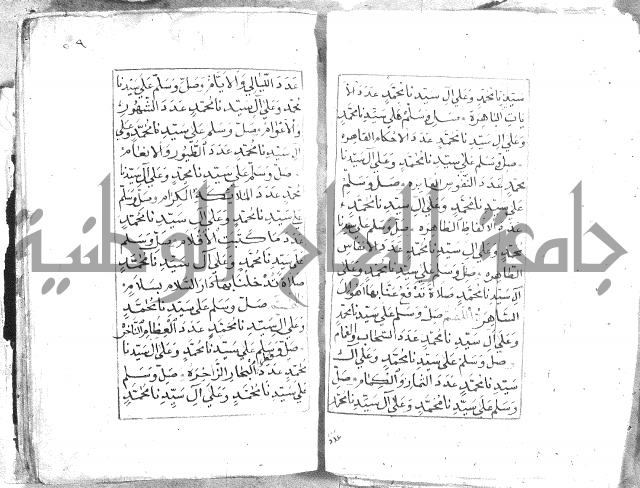 سيدنا محمد وعلى آل سيدنا محمد عدد الا
يات الباهرة وصل وسلم على سيدنا محمد
وعلى آل سيدنا محمد عدد الاحكام القاهره
وصل وسلم على سيدنا محمد وعلى آل سيدنا
محمد عدد النفوس وصل وسلم
على سيدنا محمد وعلى آل سيدنا محمد
عدد الالفاظ الظاهره وصل وسلم على سيدنا
محمد وعلى آل سيدنا محمد عدد الانفاس
الظاهره وصل وسلم على سيدنا محمد وعلى
آل سيدنا محمد صلاة تدفع عنا بها اهوال
الساهرة صل وسلم على سيدنا محمد
وعلى آل سيدنا محمد عدد السحاب والغمام
وصل وسلم على سيدنا محمد وعلى آل
سيدنا محمد عدد وصل
وسلم على سيدنا محمد وعلى آل سيدنا محمد
عدد
٥٩
عدد الليالي والايام وصل وسلم على سيدنا
محمد وعلى آل سيدنا محمد عدد الشهور
والاعوام وصل وسلم على سيدنا محمد وعلى
آل سيدنا محمد عدد الطيور والانعام
وصل وسلم على سيدنا محمد وعلى آل سيدنا
محمد عدد الملائكة الكرام وصل وسلم
على سيدنا محمد وعلى آل سيدنا محمد
عدد ما كتبت الاقلام وصل وسلم
على سيدنا محمد وعلى آل سيدنا محمد
صلاة تدخلنا بها دار السلام بسلام
صل وسلم على سيدنا محمد
وعلى آل سيدنا محمد عدد العظام الناخره
وصل وسلم على سيدنا محمد وعلى آل سيدنا
محمد عدد البحار الزاخرة وصل وسلم
على سيدنا محمد وعلى آل سيدنا محمد
جامعة النجاح الوطنية